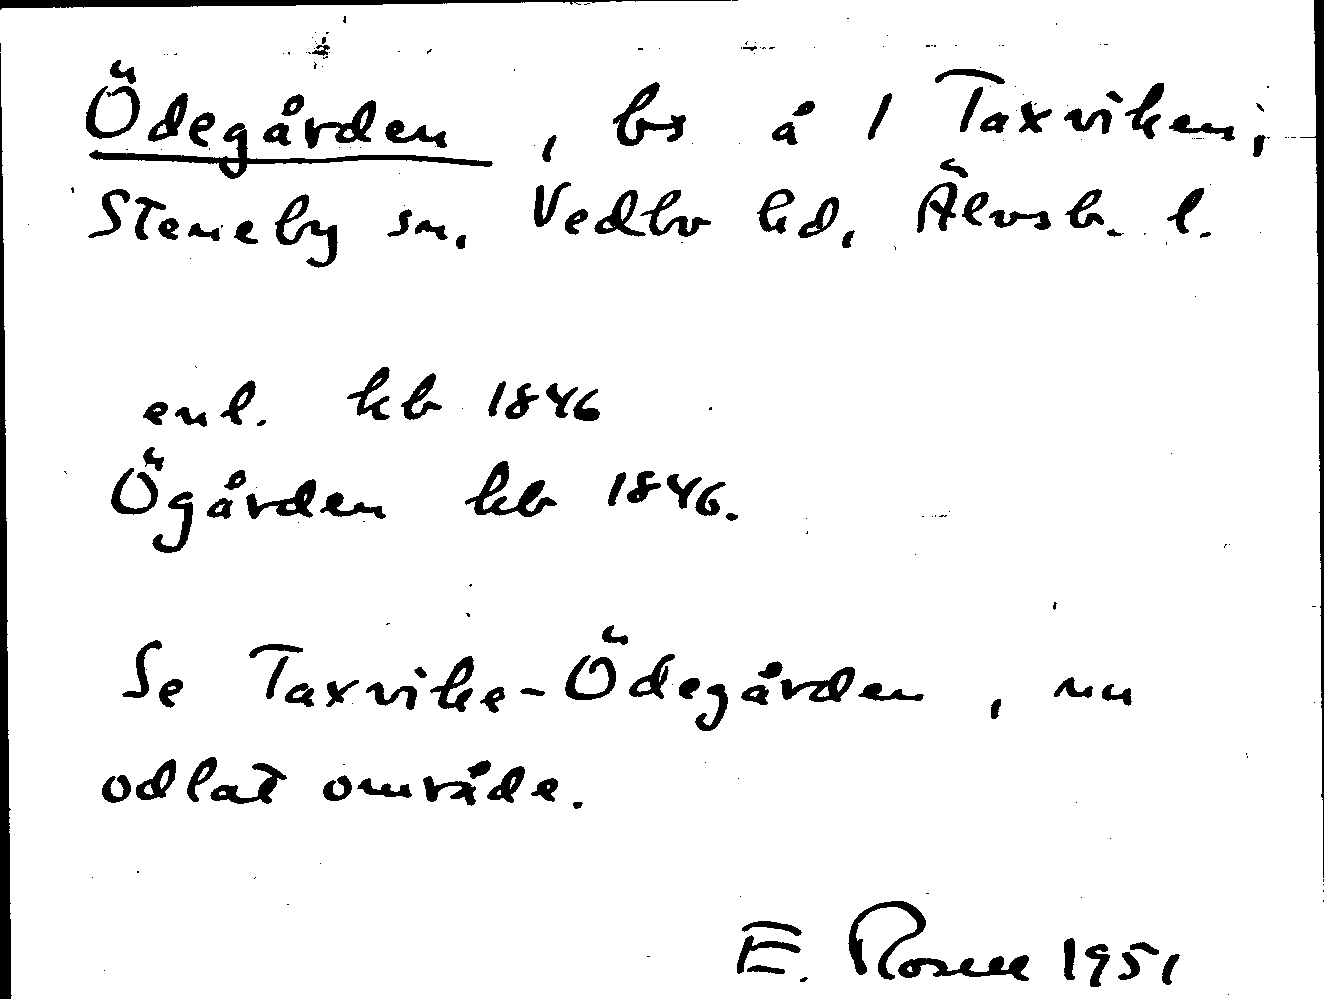 Ödegården, bs å 1 Taxviken,
Steneby sn, Vedbo hd, Älvsb. l.
enl. kb 1846
Ögården kb 1846.
Se Taxvike-Ödegården, nu
odlat område.
E. Rosell 1951